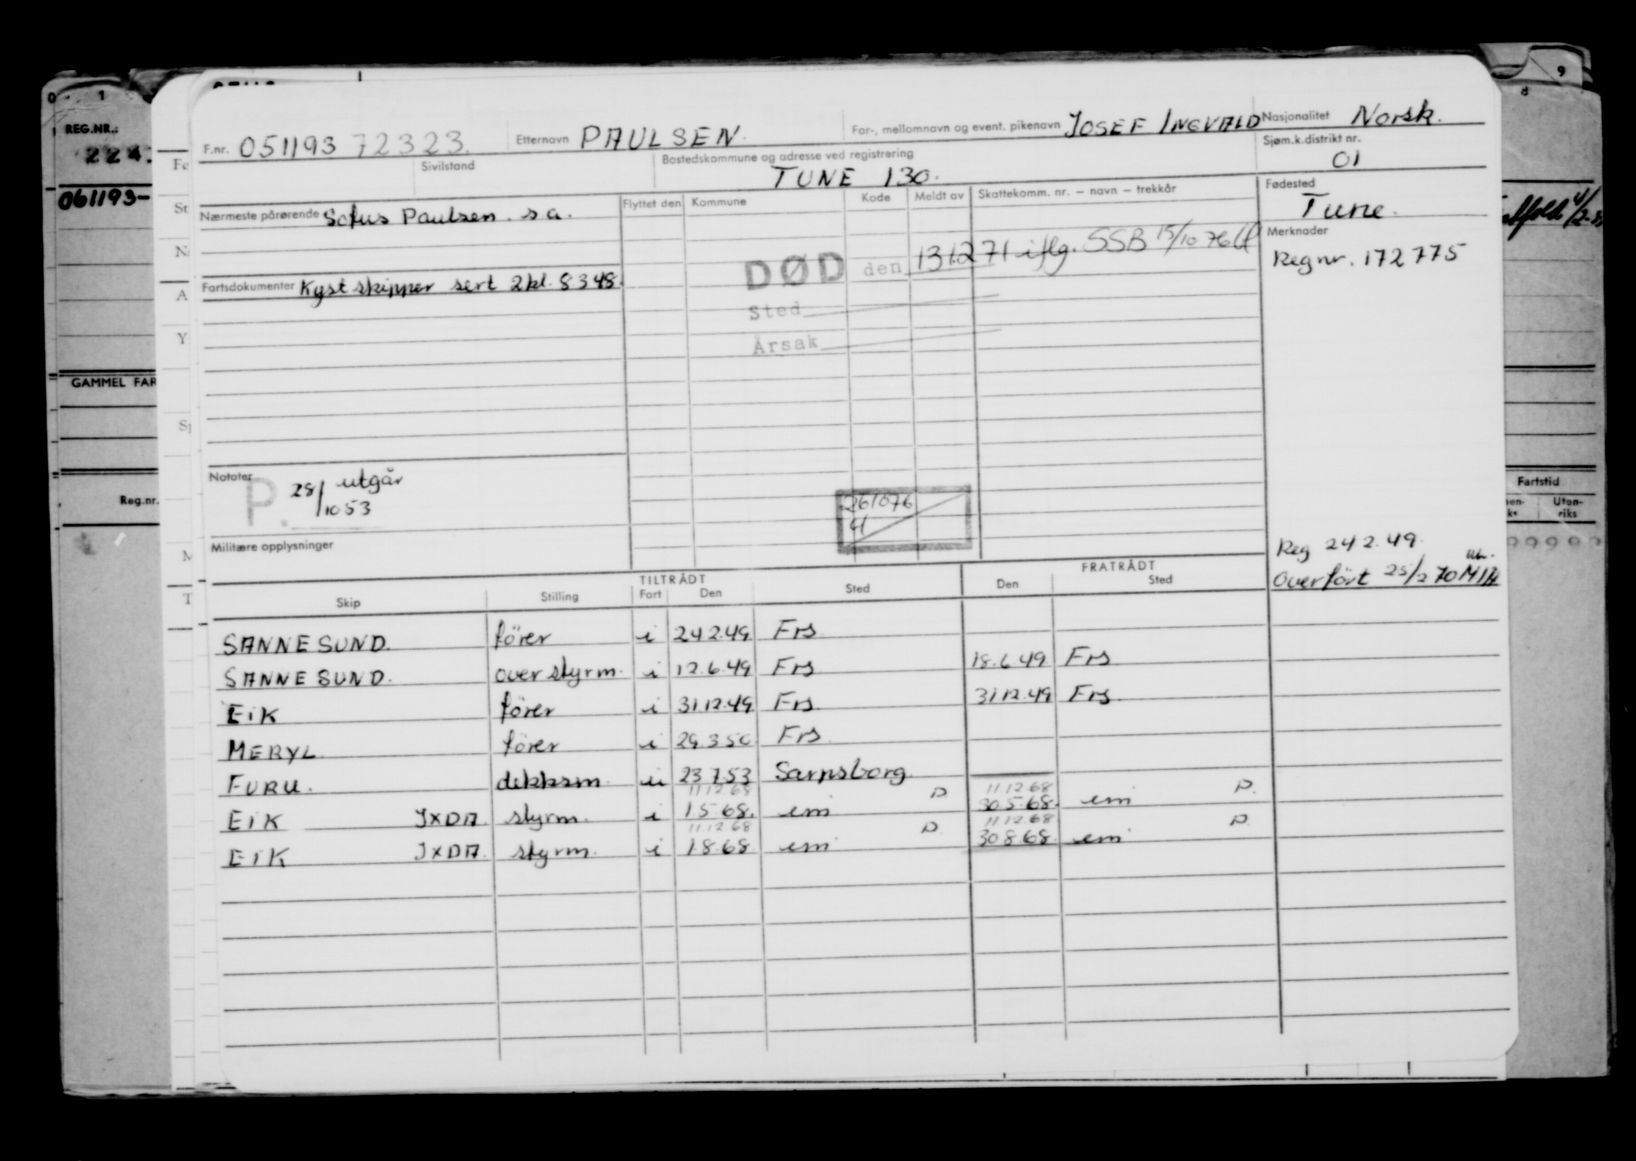 0 1
9
REG.NR.:
224.
061193-
GAMMEL FAR
Reg.nr.
F.nr. 051193 72323. Etternavn PAULSEN. For-, mellomnavn og event. pikenavn JOSEF INGVALD Nasjonalitet Norsk.
Sivilstand Bostedskommune og adresse ved registrering TUNE 130. Sjøm.k.distrikt nr. 01
Nærmeste pårørende Sofus Paulsen. s a. Flyttet den Kommune Kode Meldt av Skattekomm. nr. – navn – trekkår Fødested Tune.
Merknader
Regnr. 172775
DØD den 131271 iflg. SSB 15/10 76
Fartsdokumenter Kystskipper sert 2kl. 8348.
Sted
Årsak
Notater
P. 28/1053 utgår
261076
Militære opplysninger
Reg 242.49.
Overført 25/2 70
Fartstid
Uten-
riks
TILTRÅDT FRATRÅDT
Skip Stilling Fart Den Sted Den Sted
SANNESUND. fører i 242.49 Frs.
SANNESUND. overstyrm. i 12.6.49 Frs 18.6.49 Frs
EIK fører i 31.12.49 Frs. 31.12.49 Frs.
MERYL fører i 29.3.50 Frs.
FURU. dekksm. u 23.7.53 Sarpsborg
11.12.68 11.12.68
EIK JXDA styrm. i 1.5.68. em P 30.5.68. em P.
11.12.68 11.12.68
EIK JXDA. styrm. i 1.8.68 em P 30.8.68. em P.